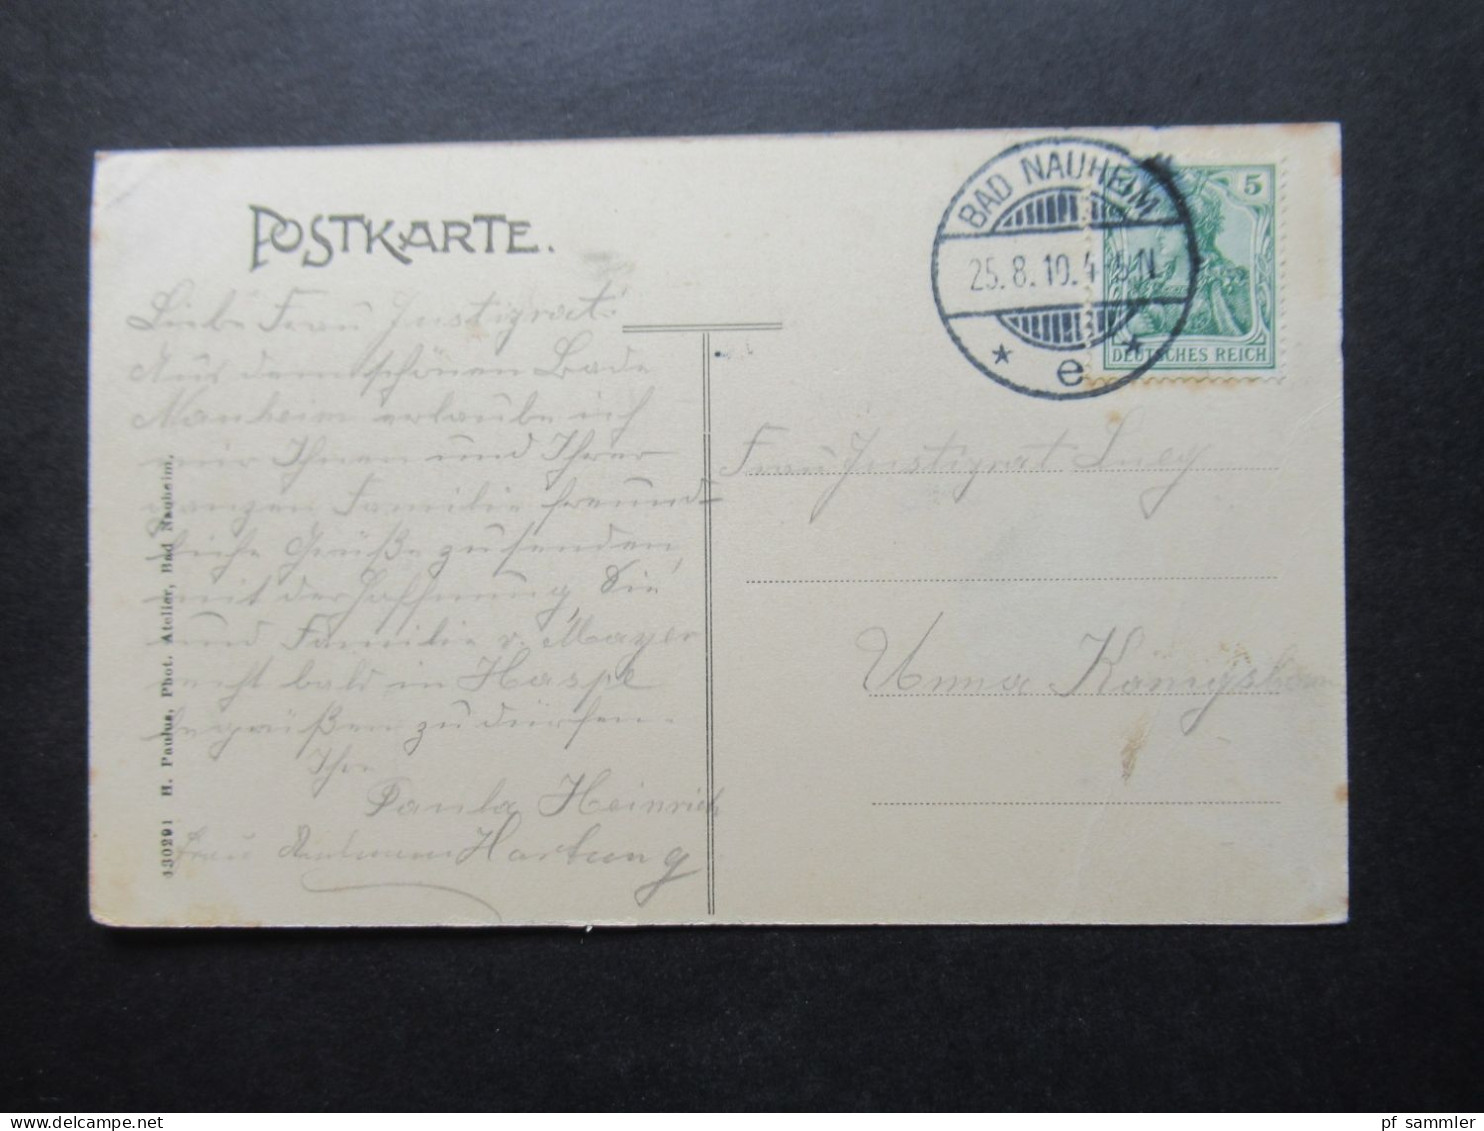 POSTKARTE.
BAD NAUHEIM
25.8.10.4-5N.
* e *
5
DEUTSCHES REICH
Liebe Frau Justizrat!
Aus dem schönen Bade
Nauheim erlaube ich
mir Ihnen und Ihrer
ganzen Familie freund-
liche Grüße zu senden,
mit der Hoffnung, Sie
und Familie v. Mayer
recht bald in Haspe
begrüßen zu dürfen.
Ihre
Paula Heinrich
Frau Hartung
Frau Justizrat
Unna Königsborn
430291 H. Paulus, Phot. Atelier, Bad Nauheim.
pf sammler